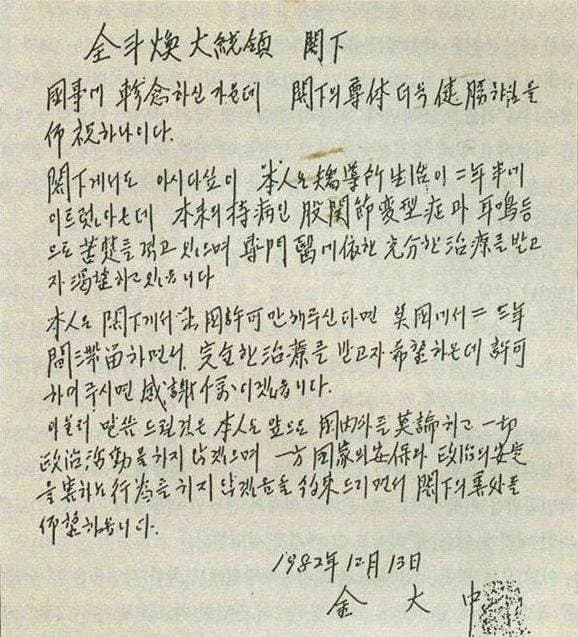 全斗煥大統領 閣下
國事에 軫念하신 가운데 閣下의 尊体 더욱 健勝하심을
仰祝하나이다.
閣下께서도 아시다싶이 本人은 矯導所生活이 二年半에
이르렀아온데 本來의 持病인 股關節変型症과 耳鳴等
으로 苦楚를 격고 있으며 專門醫에 依한 充分한 治療를 받고
자 渴望하고 있읍니다
本人은 閣下께서 出國許可만 해주신다면 美國에서 二, 三年
間 滯留하면서 完全한 治療를 받고자 希望하온데 許可
하여주시면 感謝千萬이겠읍니다.
아울러 말씀 드릴것은 本人은 앞으로 國內外를 莫論하고 一切
政治活動을 하지 않겠으며 一方 國家의 安保와 政治의 安定
을 害하는 行爲를 하지 않겠음을 約束드리면서 閣下의 善處를
仰望하옵니다.
1982年 12月 13日
金 大 中